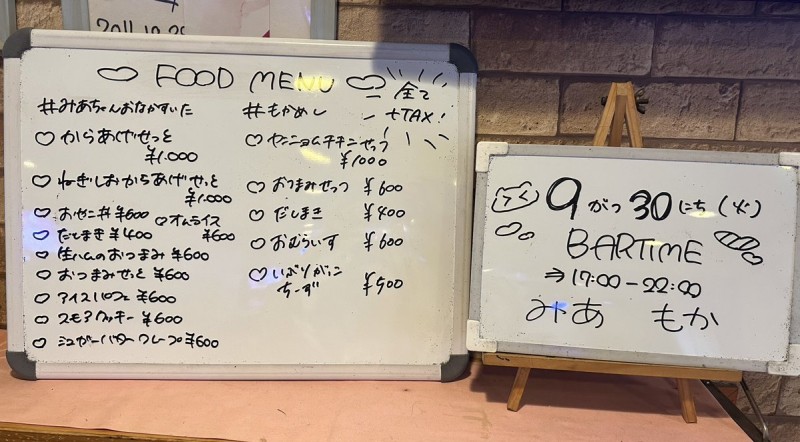 2011.10.29
FOOD MENU
全て
+TAX!
#みあちゃんおなかすいた
からあげせっと
¥1.000
ねぎしおからあげせっと
¥1.000
¥600
オムライス
¥600
だしまき ¥400
生ハムのおつまみ ¥600
おつまみせっと ¥600
アイスパフェ ¥600
スモアクッキー ¥600
シュガーバタークレープ ¥600
#もかめし
ヤンニョムチキンせっつ
¥1000
おつまみせっつ ¥600
だしまき ¥400
おむらいす ¥600
いぶりがっこ
ちーず ¥500
9がつ30にち(火)
BARTIME
⇒17:00-22:00
みあ もか